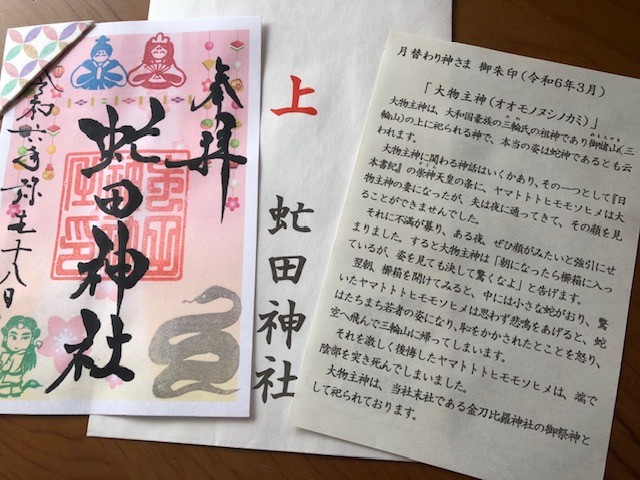 奉拝
虻田神社
令和六年弥生十八日
上
虻田神社
月替わり神さま 御朱印(令和6年3月)
「大物主神(オオモノヌシノカミ)」
大物主神は、大和国豪族の三輪氏の祖神であり御諸山(三
輪山)の上に祀られる神で、本当の姿は蛇神であるとも云
われます。
大物主神に関わる神話はいくかあり、その一つとして『日
本書紀』の崇神天皇の条に、ヤマトトトヒモモソヒメは大
物主神の妻になったが、夫は夜に通ってきて、その顔を見
ることができませんでした。
それに不満が募り、ある夜、ぜひ顔がみたいと強引にせ
まりました。すると大物主神は「朝になったら櫛箱に入っ
ているが、姿を見ても決して驚くなよ」と告げます。
翌朝、櫛箱を開けてみると、中には小さな蛇がおり、驚
いたヤマトトトヒモモソヒメは思わず悲鳴をあげると、蛇
はたちまち若者の姿になり、恥をかかされたとことを怒り、
空へ飛んで三輪山に帰ってしまいます。
それを激しく後悔したヤマトトトヒモモソヒメは、箸で
陰部を突き死んでしまいました。
大物主神は、当社末社である金刀比羅神社の御祭神と
して祀られております。